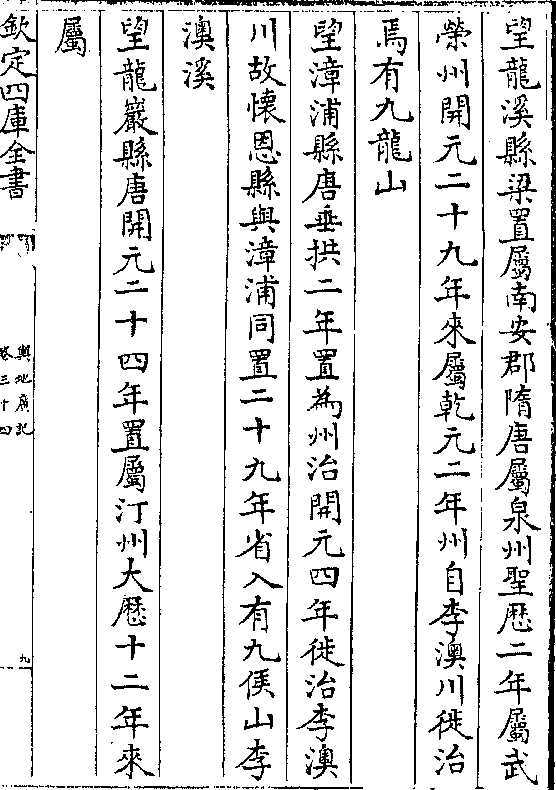 望龍溪縣梁置屬南安郡隋唐屬泉州聖厯二年屬武
榮州開元二十九年來屬乾元二年州自李澳川徙治
焉有九龍山
望漳浦縣唐垂拱二年置為州治開元四年徙治李澳
川故懐恩縣與漳浦同置二十九年省入有九侯山李
澳溪
望龍巖縣唐開元二十四年置屬汀州大厯十二年來
屬
欽定四庫全書
輿地廣記
卷三十四
九